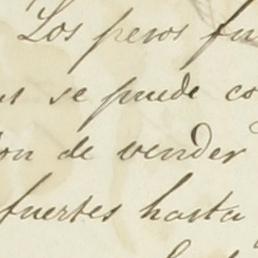 Los pesos fu
se puede co
on de vender
fuertes hasta